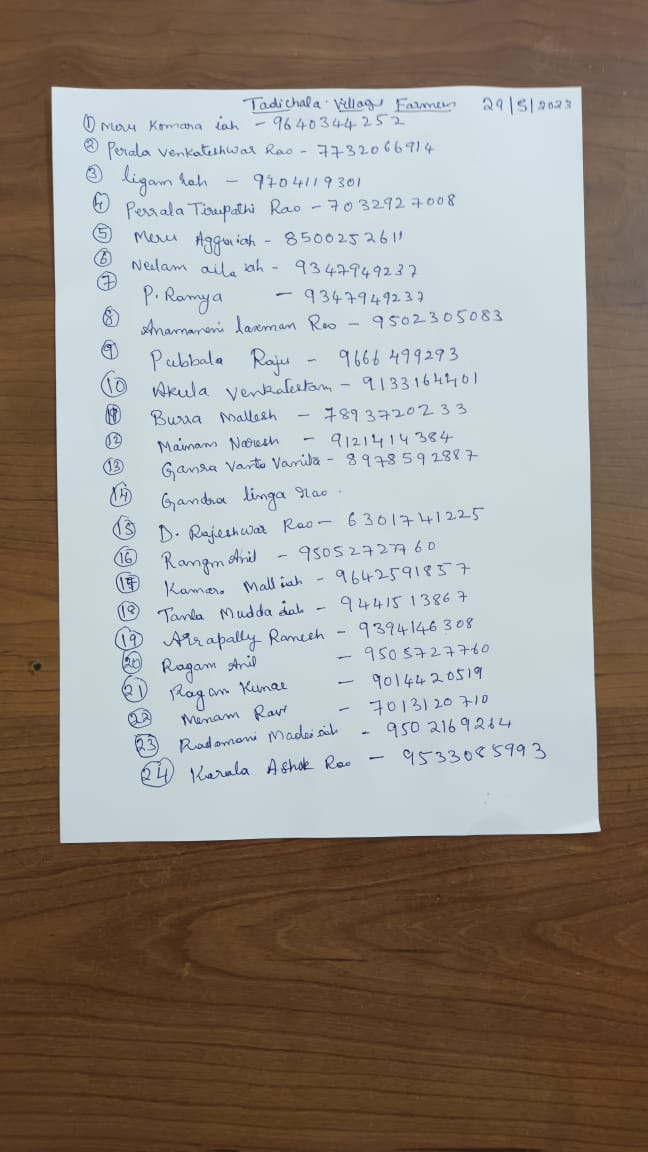 Tadichala Village Farmers 29/5/2023
① Meru Komara iah - 9640344252
② Perala Venkateshwar Rao - 7732066914
③ ligam iah - 9704119301
④ Perrala Tirupathi Rao - 7032927008
⑤ Meru Aggaiah - 8500252611
⑥ Neelam aila iah - 9347949237
⑦ P. Ramya - 9347949237
⑧ Anamaneni laxman Rao - 9502305083
⑨ Pubbala Raju - 9666499293
⑩ Akula Venkatestam - 9133164401
⑪ Burra Mallesh - 7893720233
⑫ Mainam Naresh - 9121414384
⑬ Ganra Vanta Vanita - 8978592887
⑭ Gandra linga Rao .
⑮ D. Rajeshwar Rao - 6301741225
⑯ Rangm Anil - 95052727760
⑰ Kamara Malliah - 9642591857
⑱ Tanla Mudda iah - 9441513867
⑲ Airapally Ramesh - 9394146308
⑳ Ragam Anil - 9505727760
㉑ Ragam Kumar - 9014420519
㉒ Menam Ravi - 7013120710
㉓ Radamani Madeiah - 9502169264
㉔ Karala Ashok Rao - 9533085993